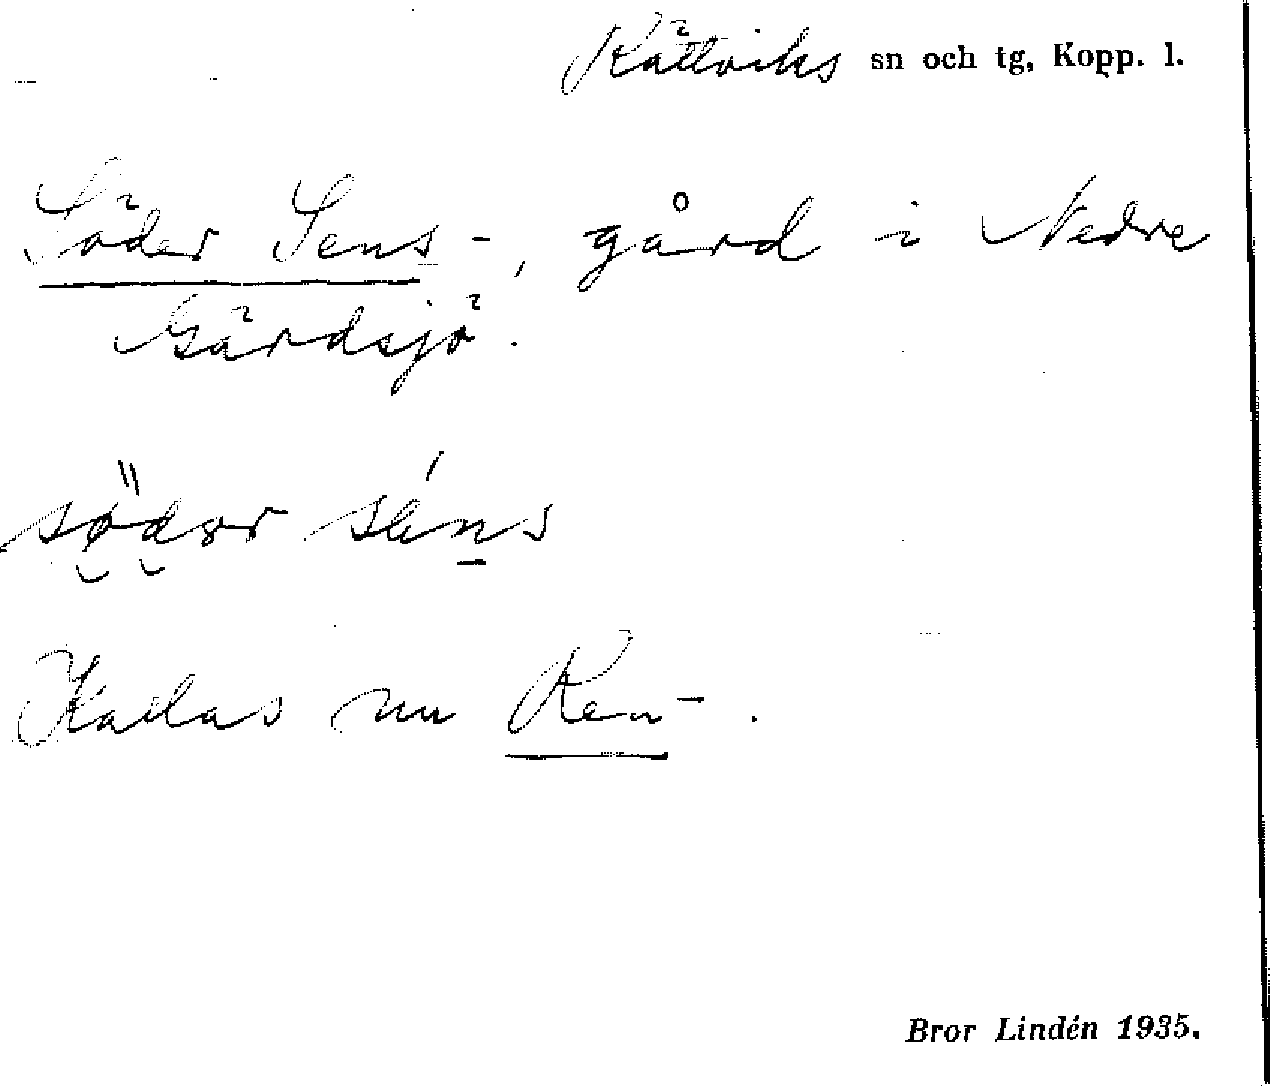 Rättviks sn och tg, Kopp. l.
Söder Sens-, gård i Nedre
Gärdsjö.
Kallas nu Ren-.
Bror Lindén 1935.